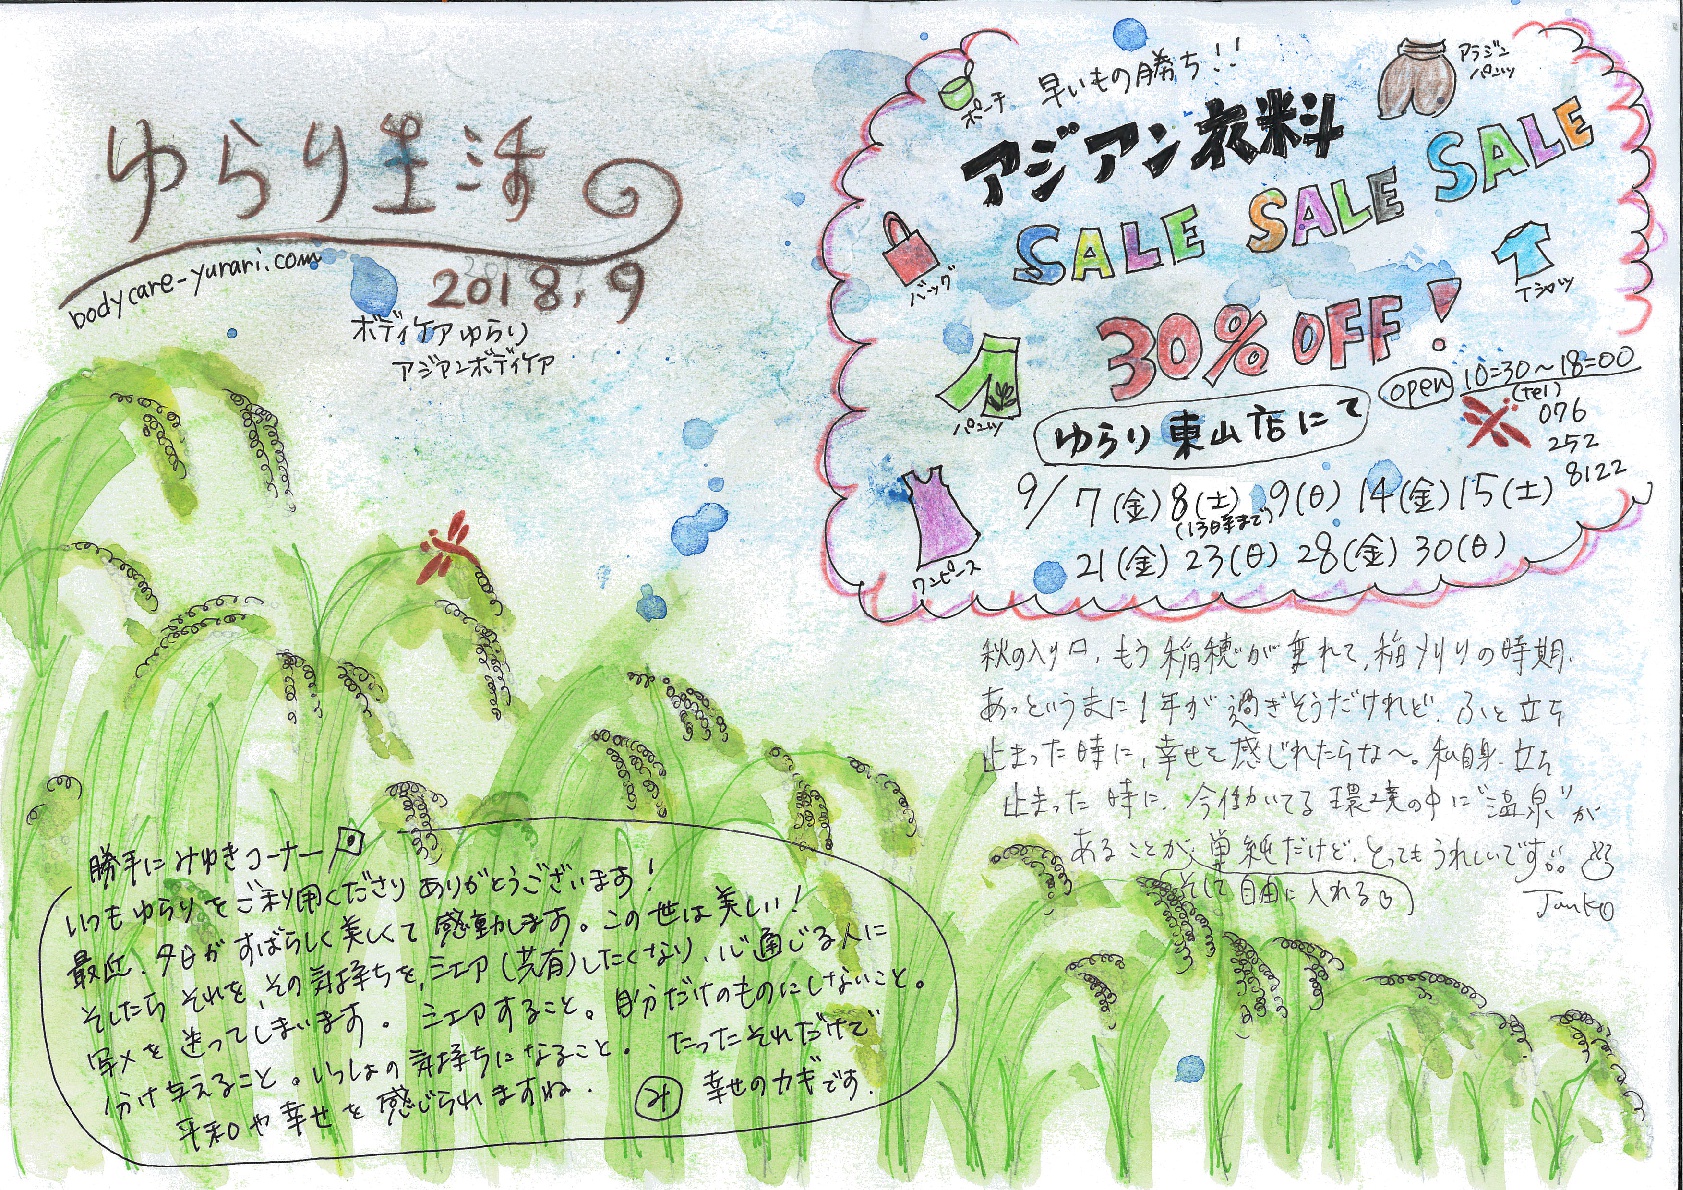 ゆらり生活の
bodycare-yurari.com
2018.9
ボディケアゆらり
アジアンボディケア
早いもの勝ち!!
ポーチ
アラジン
パンツ
アジアン衣料
SALE SALE SALE
バッグ
Tシャツ
30% OFF!
パンツ
open 10:30～18:00
(tel)
076
252
8122
ゆらり東山店にて
9/7(金)8(土)9(日)14(金)15(土)
(13時まで)
21(金)23(日)28(金)30(日)
ワンピース
秋の入り口、もう稲穂が垂れて、稲刈りの時期、
あっというまに1年が過ぎそうだけれど、ふと立ち
止まった時に、幸せて感じれたらな〜。私自身、立ち
止まった時に、今働いてる環境の中に"温泉"が
あることが、単純だけど、とってもうれしいです。
そして自由に入れる
Junko
勝手にみゆきコーナー
いつもゆらりをご利用くださりありがとうございます!
最近、夕日がすばらしく美しくて感動します。この世は美しい!
そしたらそれを、その気持ちを、シェア(共有)したくなり、心通じる人に
写メを送ってしまいます。シェアすること。自分だけのものにしないこと。
分け与えること。いっしょの気持ちになること。たったそれだけで
平和や幸せを感じられますね。幸せのカギです。